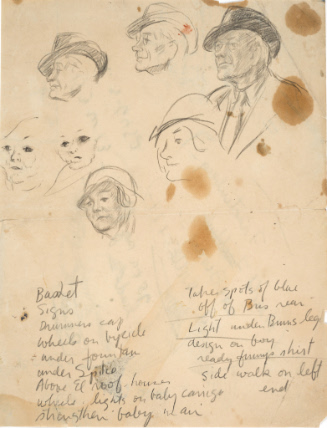 Basket
Signs
Drummers cap
wheels on bycicle
under fountain
under
Above El roof houses
wheels, lights on baby carriage
strengthen baby in air
Take spots of blue
off of Bus rear
Light under Bums leg
design on boy
ready shirt
side walk on left
end